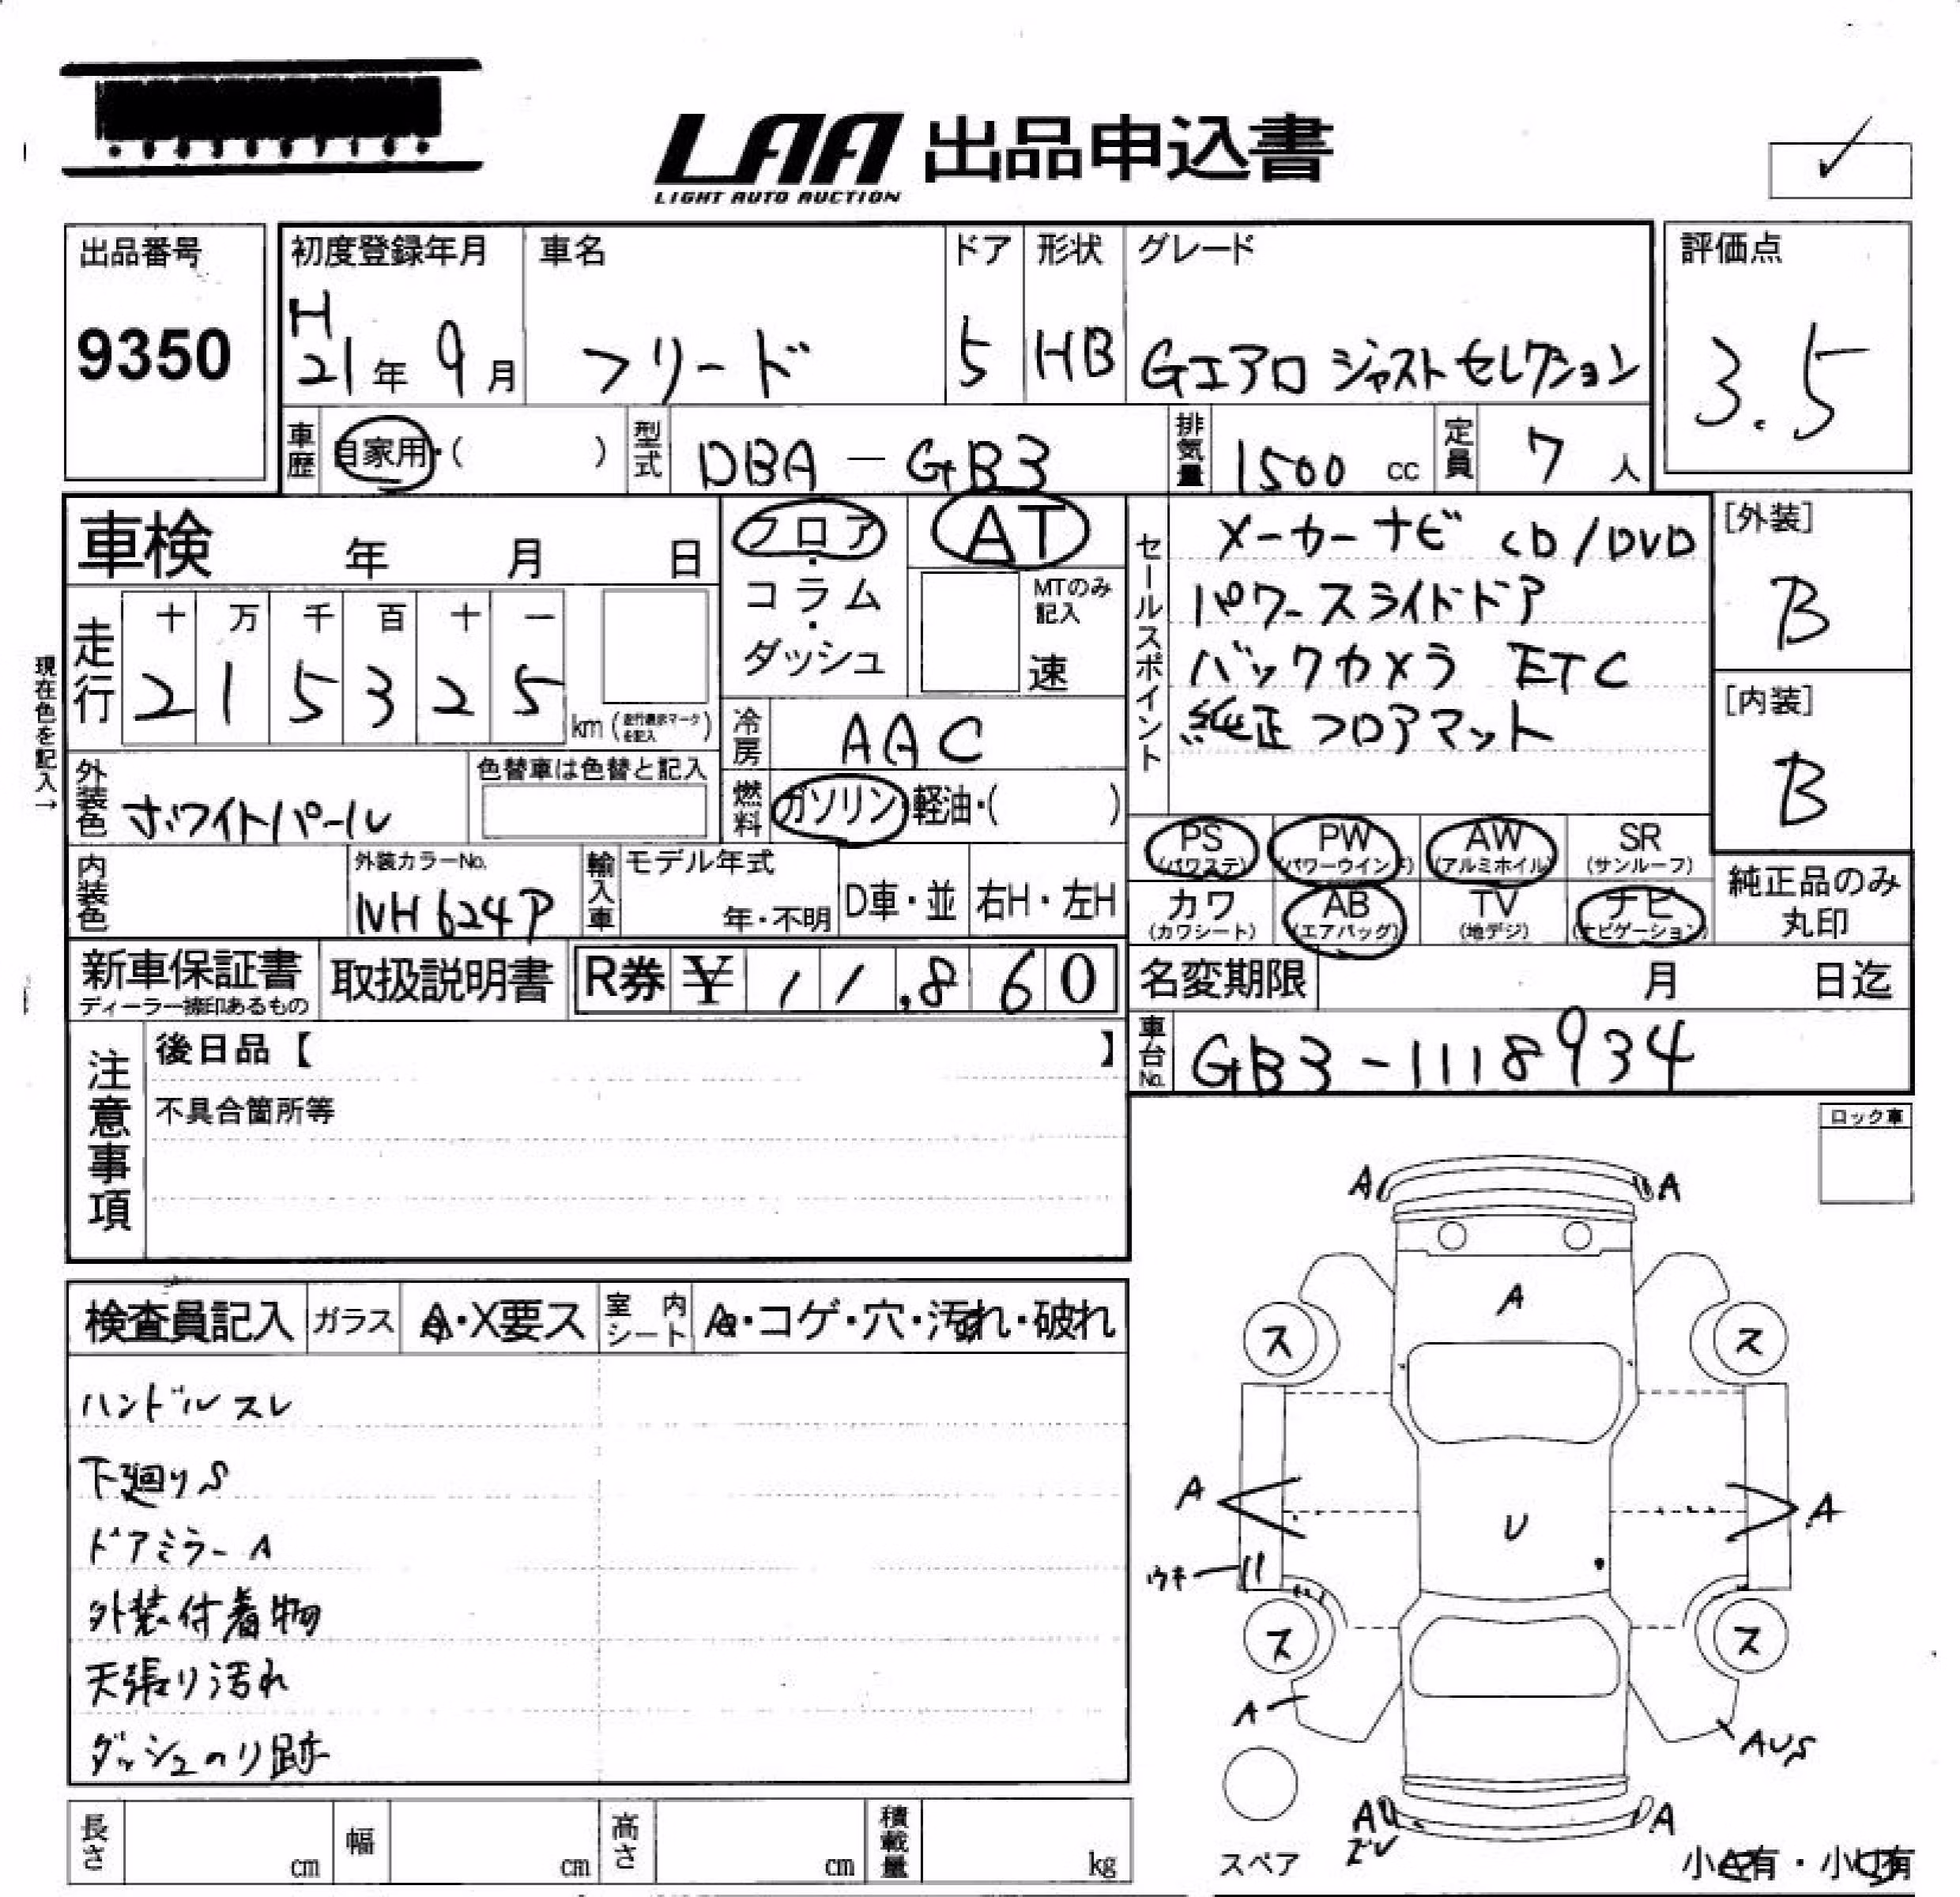 LAA 出品申込書
LIGHT AUTO AUCTION
出品番号
9350
初度登録年月
H
21年 9月
車名
フリード
ドア
5
形状
HB
グレード
Gエアロ ジャストセレクション
評価点
3.5
車歴
自家用・( )
型式
DBA-GB3
排気量
1500 cc
定員
7 人
車検 年 月 日
フロア・コラム・ダッシュ
AT
MTのみ記入
速
セールスポイント
メーカーナビ CD/DVD
パワースライドドア
バックカメラ ETC
純正フロアマット
[外装]
B
[内装]
B
現在色を記入→
走行
十 万 千 百 十 一
2 1 5 3 2 5
km(走行表示マークを記入)
冷房
AAC
外装色
ホワイトパール
色替車は色替と記入
燃料
ガソリン・軽油・( )
PS (パワステ)
PW (パワーウインド)
AW (アルミホイル)
SR (サンルーフ)
カワ (カワシート)
AB (エアバッグ)
TV (地デジ)
ナビ (ナビゲーション)
純正品のみ
丸印
内装色
外装カラーNo.
NH624P
輸入車
モデル年式
年・不明
D車・並
右H・左H
新車保証書
ディーラー捺印あるもの
取扱説明書
R券 ¥ 11,860
名変期限 月 日迄
車台No.
GB3-1118934
注意事項
後日品【 】
不具合箇所等
ロック車
検査員記入
ガラス
A・X要ス
室内シート
・コゲ・穴・汚れ・破れ
ハンドルスレ
下廻りS
ドアミラーA
外装付着物
天張り汚れ
ダッシュのり跡
A A
A
ス ス
A A
U
ウキ
ス ス
A
AUS
A A
スペア
小有・小有
長さ cm
幅 cm
高さ cm
積載量 kg